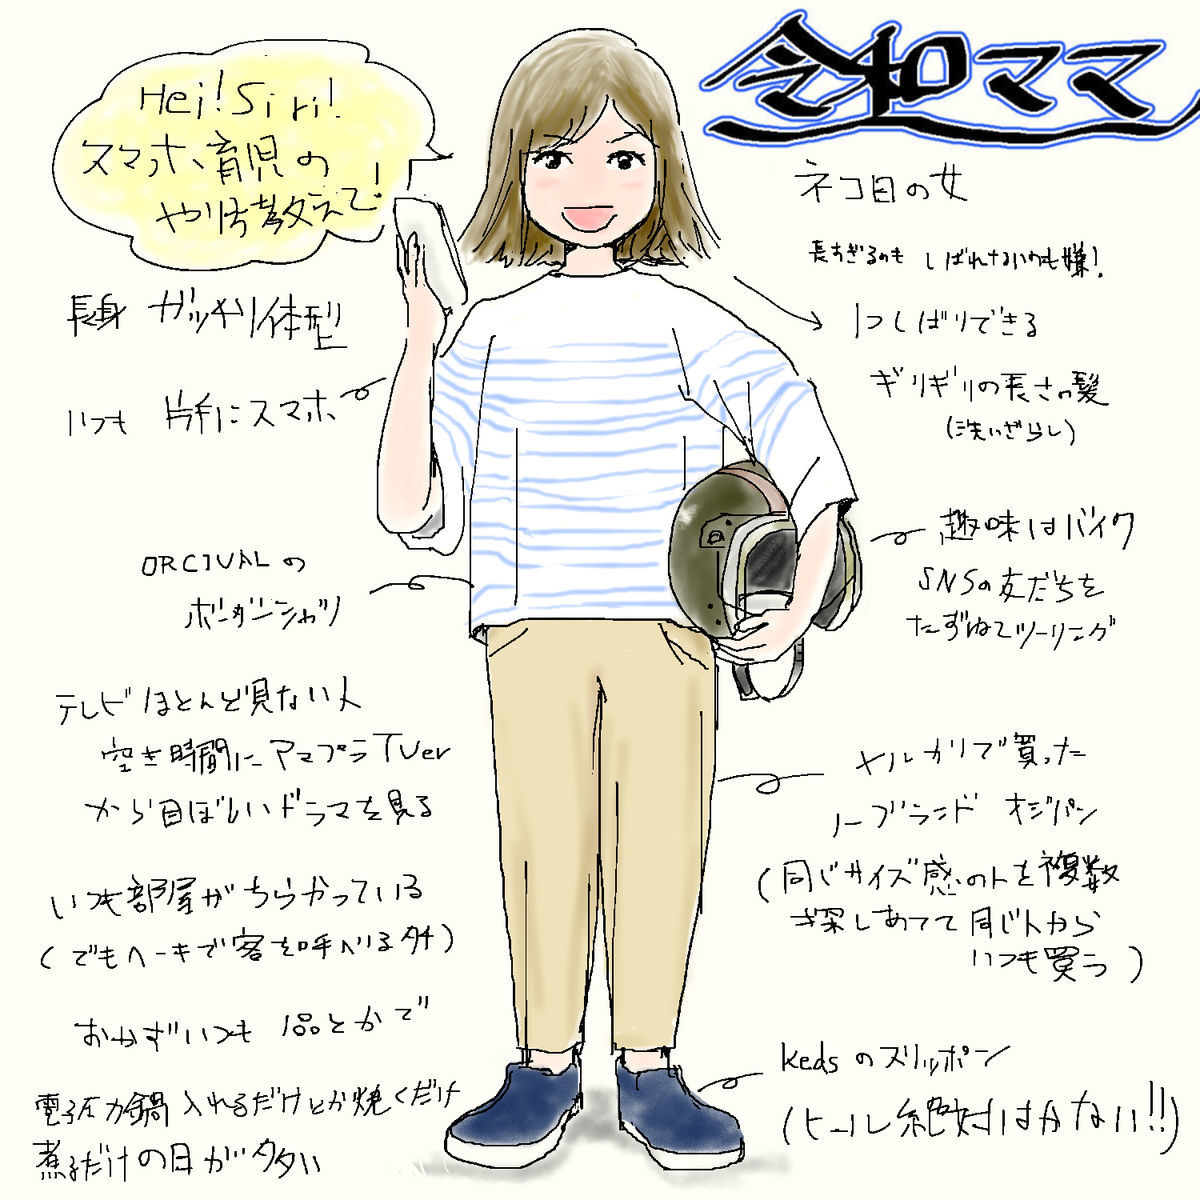 令和ママ
Hei!Siri!
スマホ、育児の
やり方教えて!
ネコ目の女
長すぎるのも しばれないのも嫌!
1つしばりできる
ギリギリの長さの髪
(洗いざらし)
長身 ガッチリ体型
いつも 片手にスマホ
趣味はバイク
SNSの友だちを
たずねてツーリング
ORCIVALの
ボーダーシャツ
テレビほとんど見ない人
空き時間にアマプラTVer
から目ぼしいドラマを見る
メルカリで買った
ノーブランド オジパン
(同じサイズ感の人を複数
探しあてて同じ人から
いつも買う)
いつも部屋がちらかっている
(でもヘーキで客を呼べるタチ)
おかずいつも 1品とかで
電子圧力鍋 入れるだけとか焼くだけ
煮るだけの日が多い
Kedsのスリッポン
(ヒール絶対はかない!!)